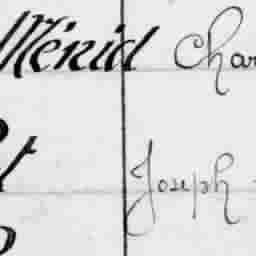 Ménid Char
t Joseph